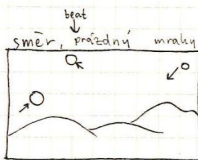 beat
směr, prázdný mraky